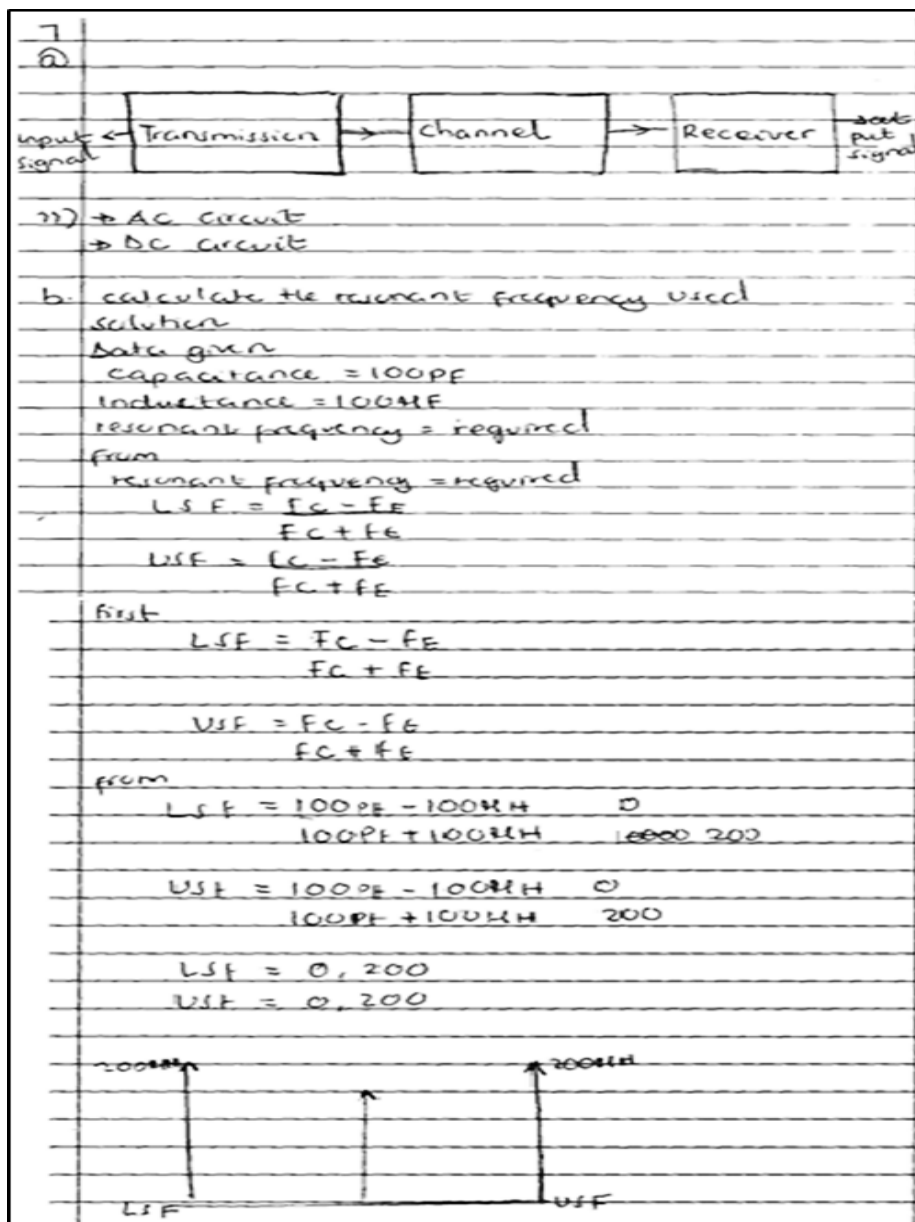 7
(a)
input signal
Transmission
Channel
Receiver
out put signal
ii) → AC circuit
→ DC circuit
b. calculate the resonant frequency used
solution
Data given
Capacitance = 100PF
Inductance = 100MF
resonant frequency = required
from
resonant frequency = required
LSF = FC - FE
FC + FE
USF = FC - FE
FC + FE
first
LSF = FC - FE
FC + FE
USF = FC - FE
FC + FE
from
LSF = 100PF - 100MH 0
100PF + 100MH 200
USF = 100PF - 100MH 0
100PF + 100MH 200
LSF = 0, 200
USF = 0, 200
200MH 200MH
LSF USF